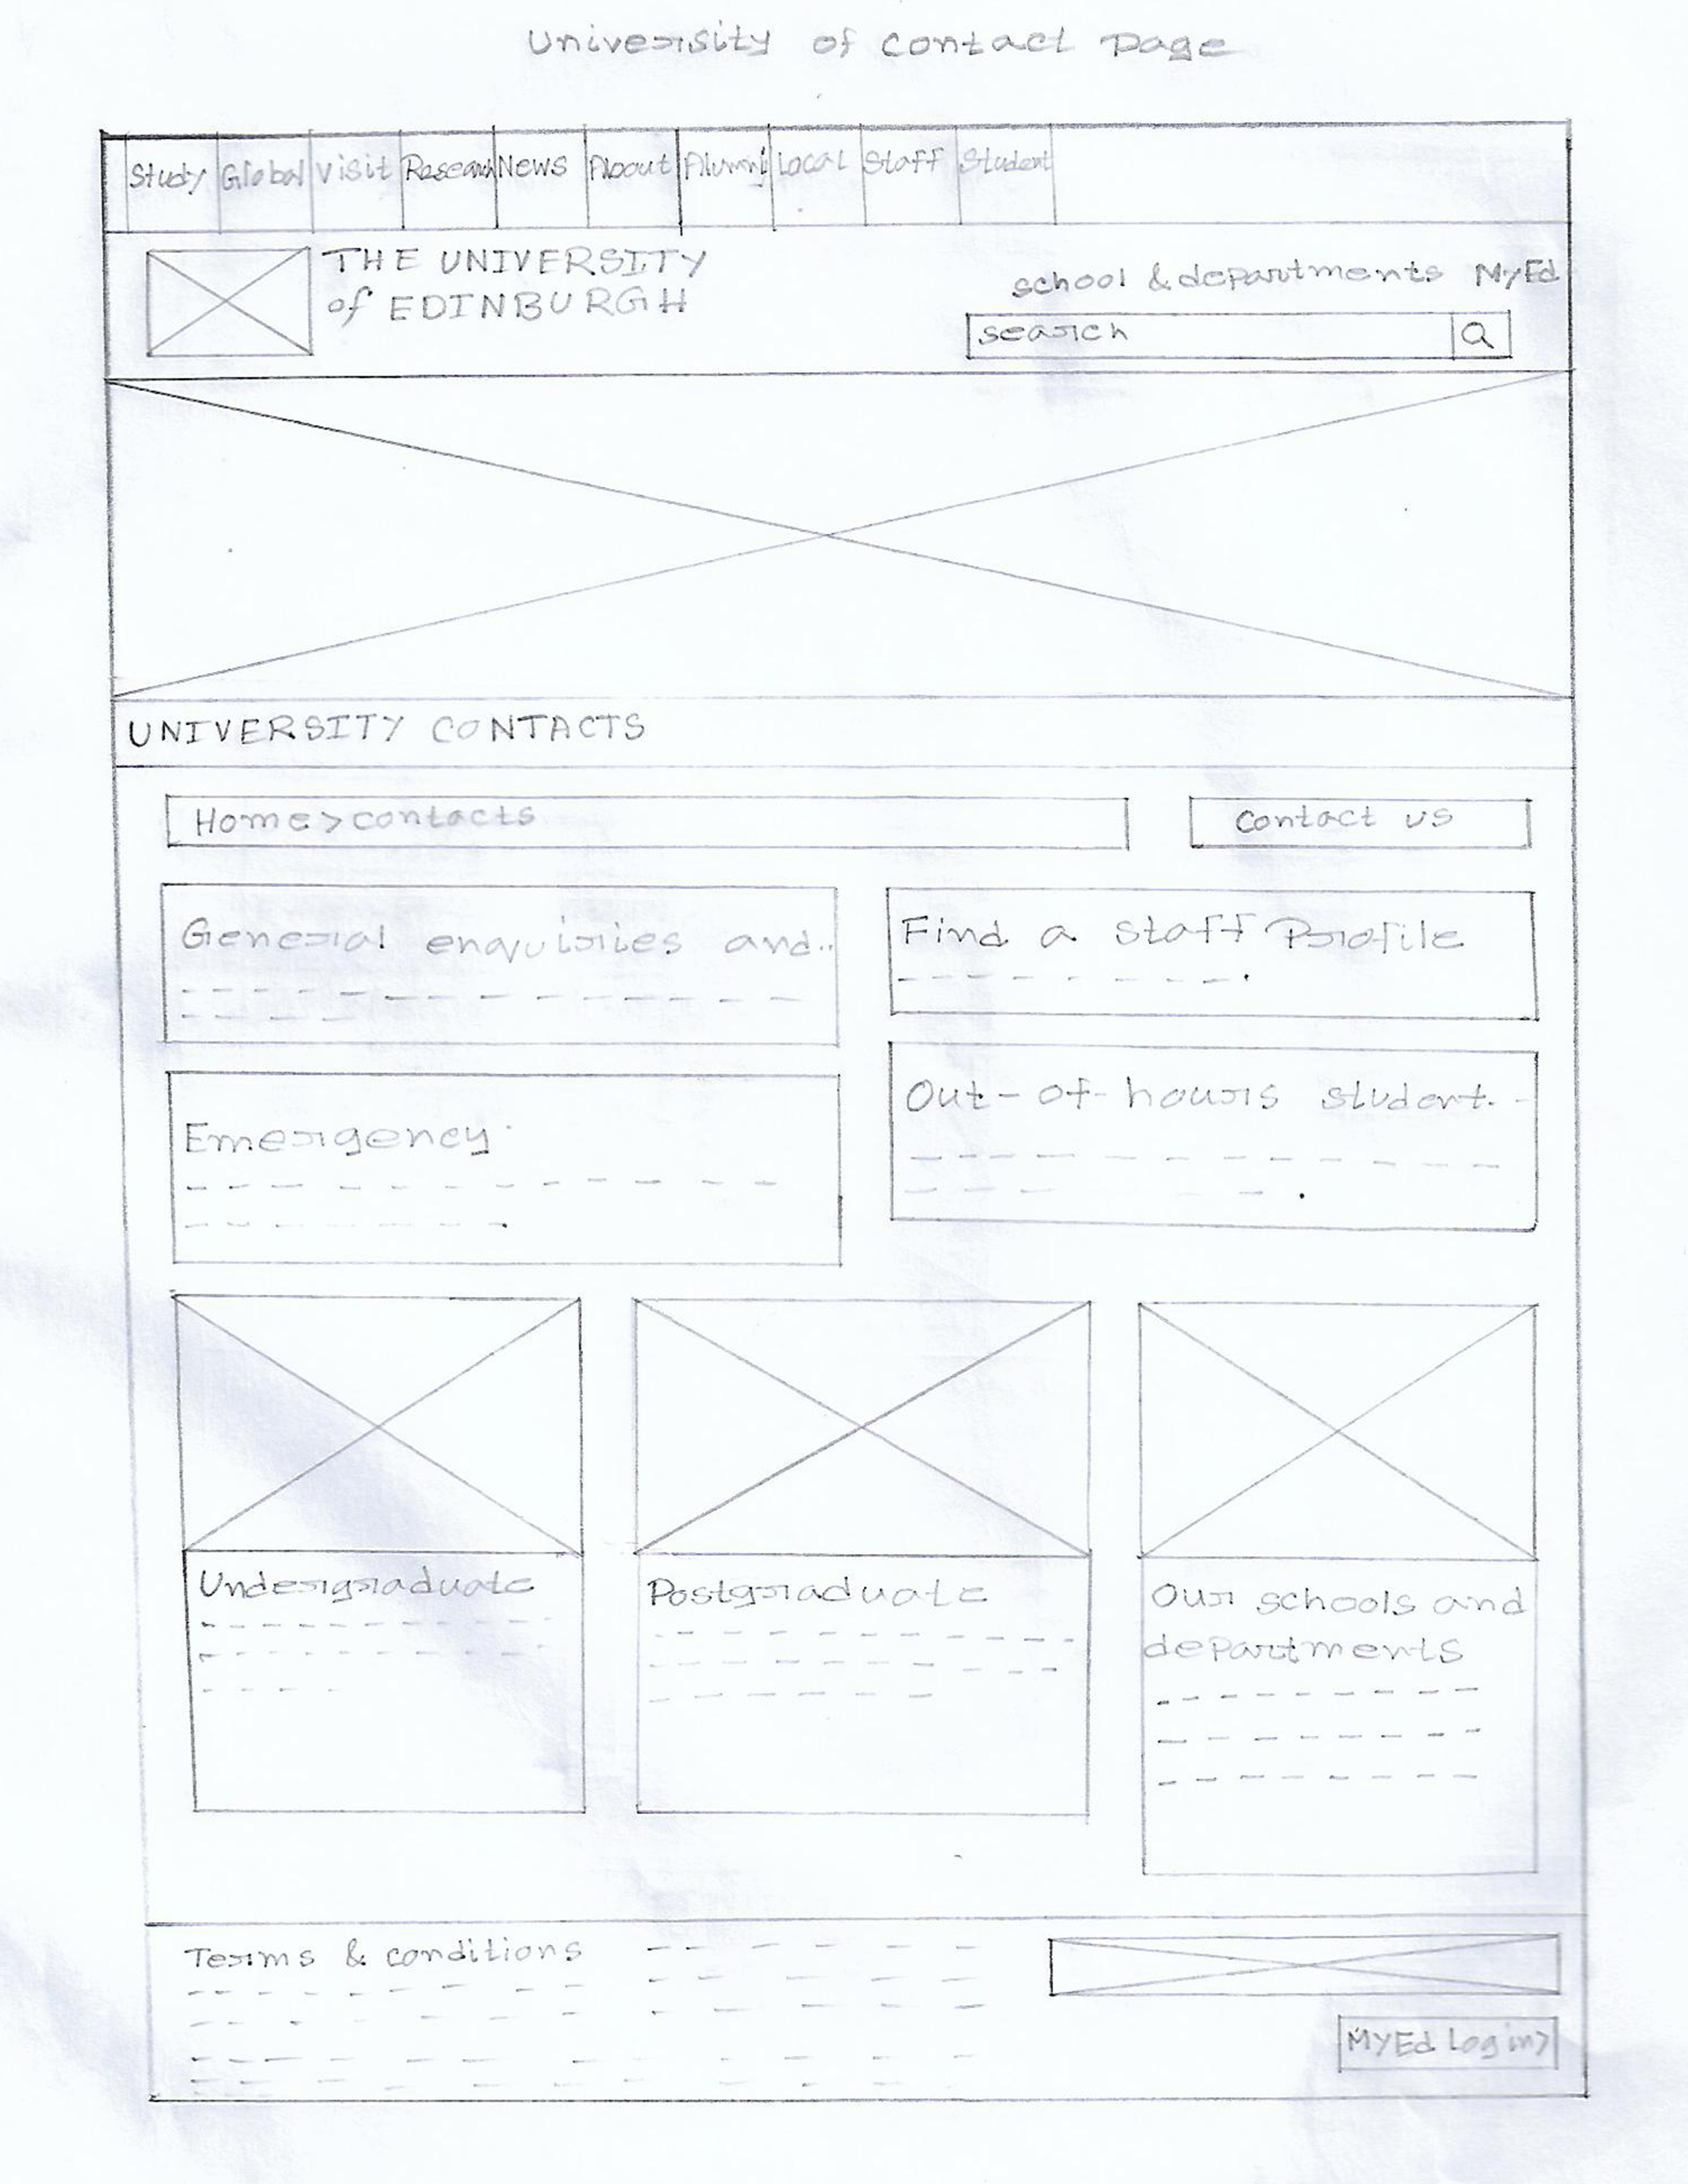 University of contact Page
Study Global Visit Research News About Alumni Local Staff Student
THE UNIVERSITY
of EDINBURGH
school & departments MyEd
search
UNIVERSITY CONTACTS
Home>contacts
Contact us
General enquiries and..
Find a staff Profile
Emergency
Out-of-hours student..
Undergraduate
Postgraduate
Our schools and
departments
Terms & conditions
MYEd Login>